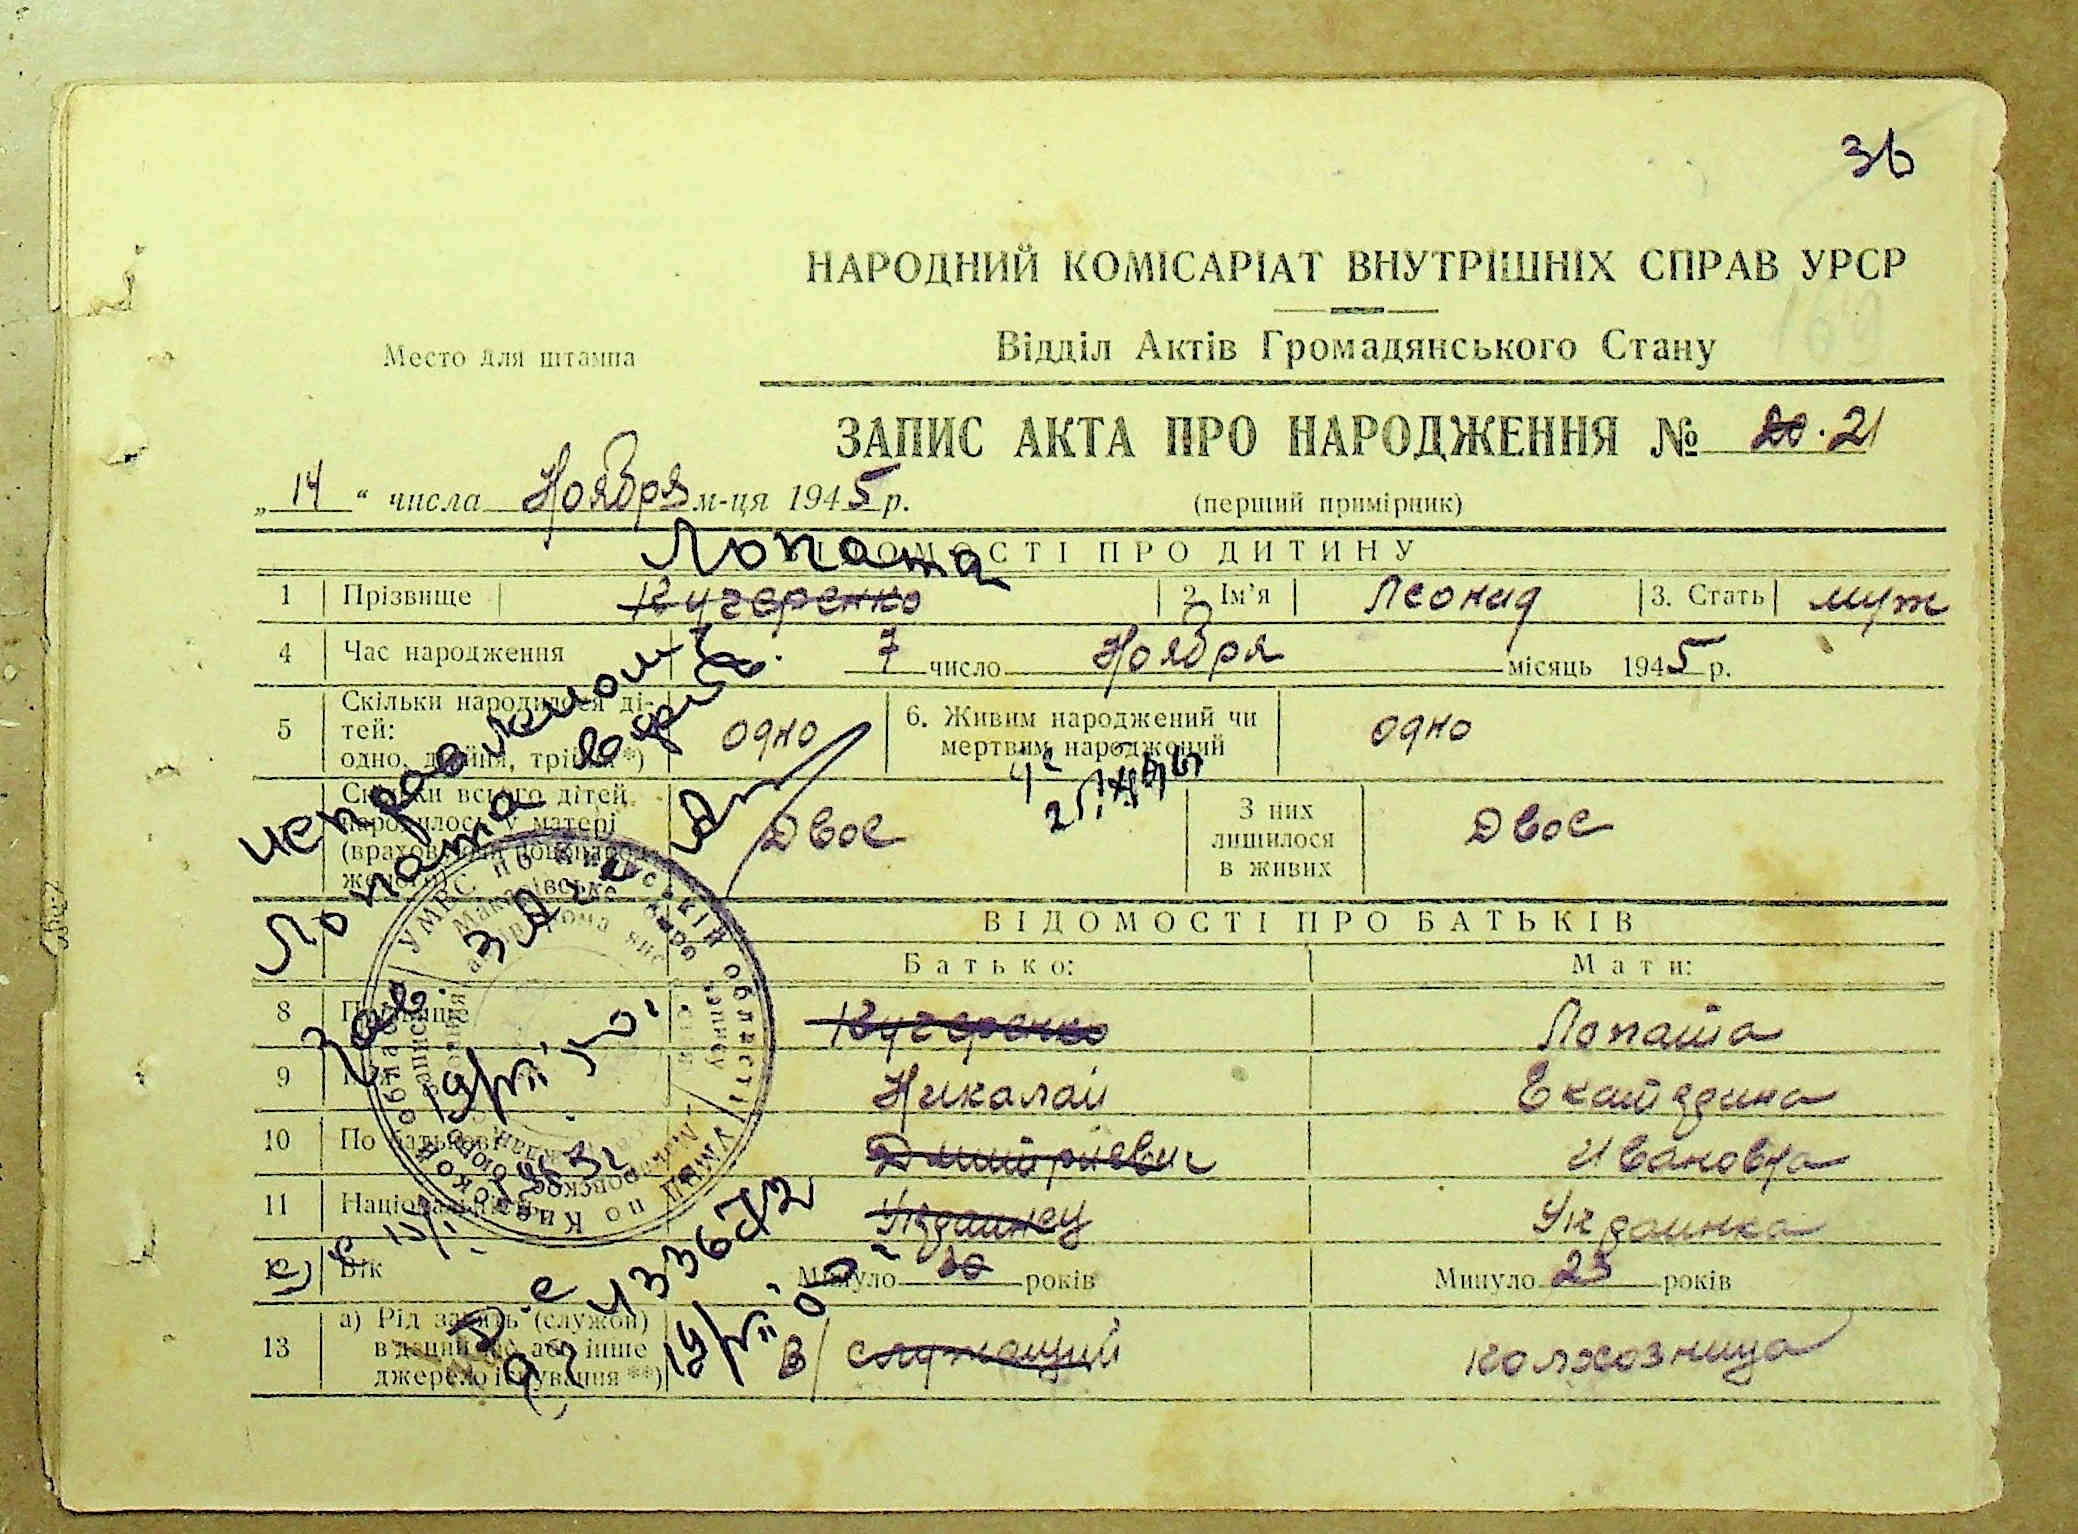 36
НАРОДНИЙ КОМІСАРІАТ ВНУТРІШНІХ СПРАВ УРСР
169
Место для штампа
Відділ Актів Громадянського Стану
ЗАПИС АКТА ПРО НАРОДЖЕННЯ № 20. 21
„14“ числа Ноября м-ця 1945 р.
(перший примірник)
ВІДОМОСТІ ПРО ДИТИНУ
Лопата
1 Прізвище Кучеренко 2. Ім’я Леонид 3. Стать муж
4 Час народження 7 число Ноября місяць 1945 р.
5 Скільки народилося ді-
тей:
одно, двійня, трійня*) одно
6. Живим народжений чи
мертвим народжений одно
Скільки всього дітей
народилось у матері
(враховуючи новонарод-
женого) Двое
З них
лишилося
в живих Двое
исправленому
Лопата верить.
Зав. ЗАГС
19/VII 50.
ВІДОМОСТІ ПРО БАТЬКІВ
Батько: Мати:
8 Прізвище Кучеренко Лопата
9 Ім’я Николай Екатерина
10 По батькові Дмитриевич Ивановна
11 Національність Украинец Украинка
12 Вік Минуло 30 років Минуло 23 років
433672
19/VII 50
13 а) Рід занять (служби)
в даний час або інше
джерело існування **) служащий колхозница
УМВС по Київській області
УМВД по Киевской области